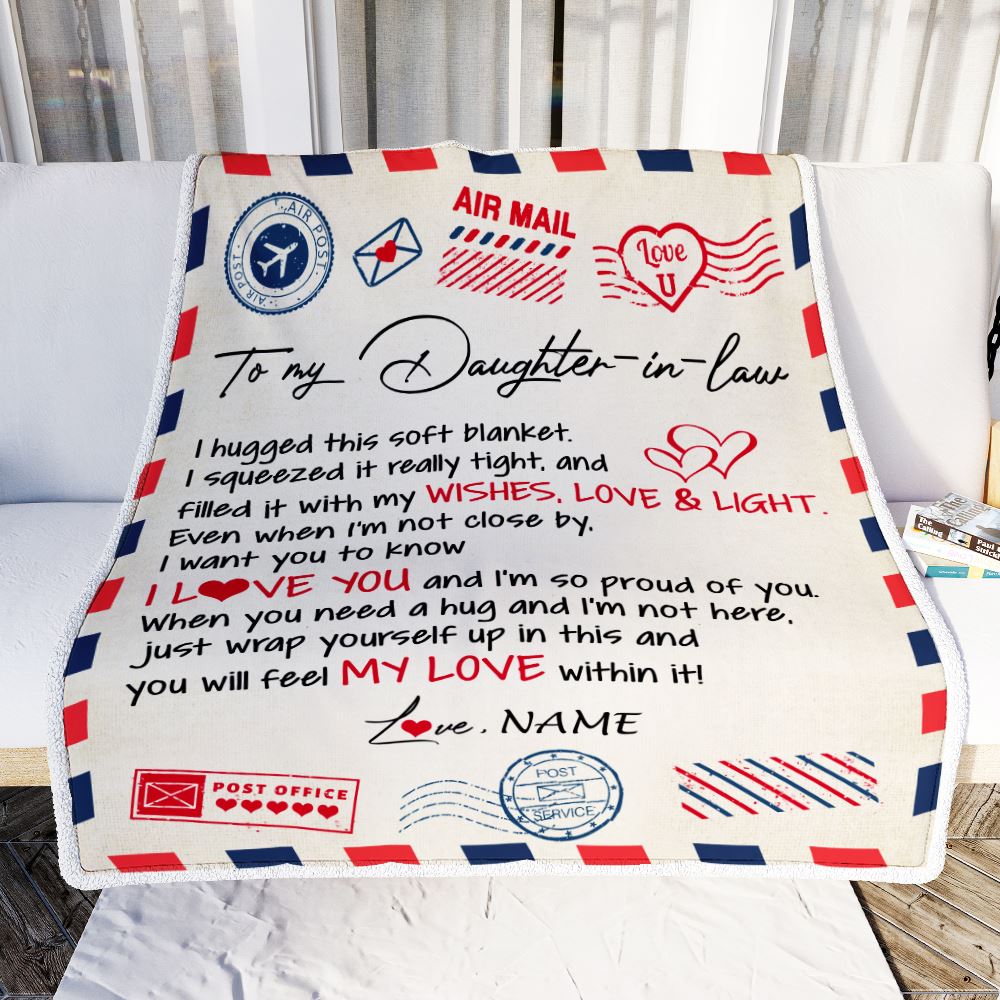 AIR POST
AIR POST
AIR MAIL
Love
U
To my Daughter-in-law
I hugged this soft blanket.
I squeezed it really tight, and
filled it with my WISHES, LOVE & LIGHT.
Even when I'm not close by,
I want you to know
I L♥VE YOU and I'm so proud of you.
When you need a hug and I'm not here,
just wrap yourself up in this and
you will feel MY LOVE within it!
L♥ve, NAME
POST OFFICE
POST
SERVICE
The
Calling